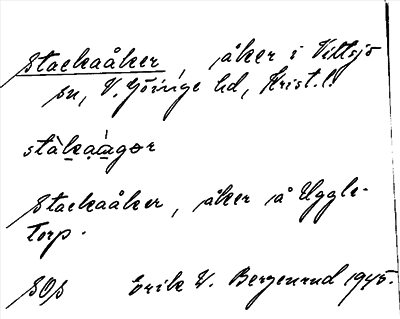 Stackaåker, åker i Vittsjö
sn, V. Göinge hd, Krist. l.
stàkaágər
Stackaåker, åker å Uggle-
torp.
SOS Erik W. Bergenrud 1945.